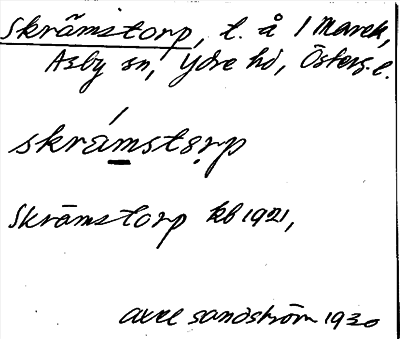 Skrämstorp, l. å 1 Marek,
Asby sn, Ydre hd, Österg. l.
skrámstorp
Skrämstorp kb 1921,
Axel Sandström 1930